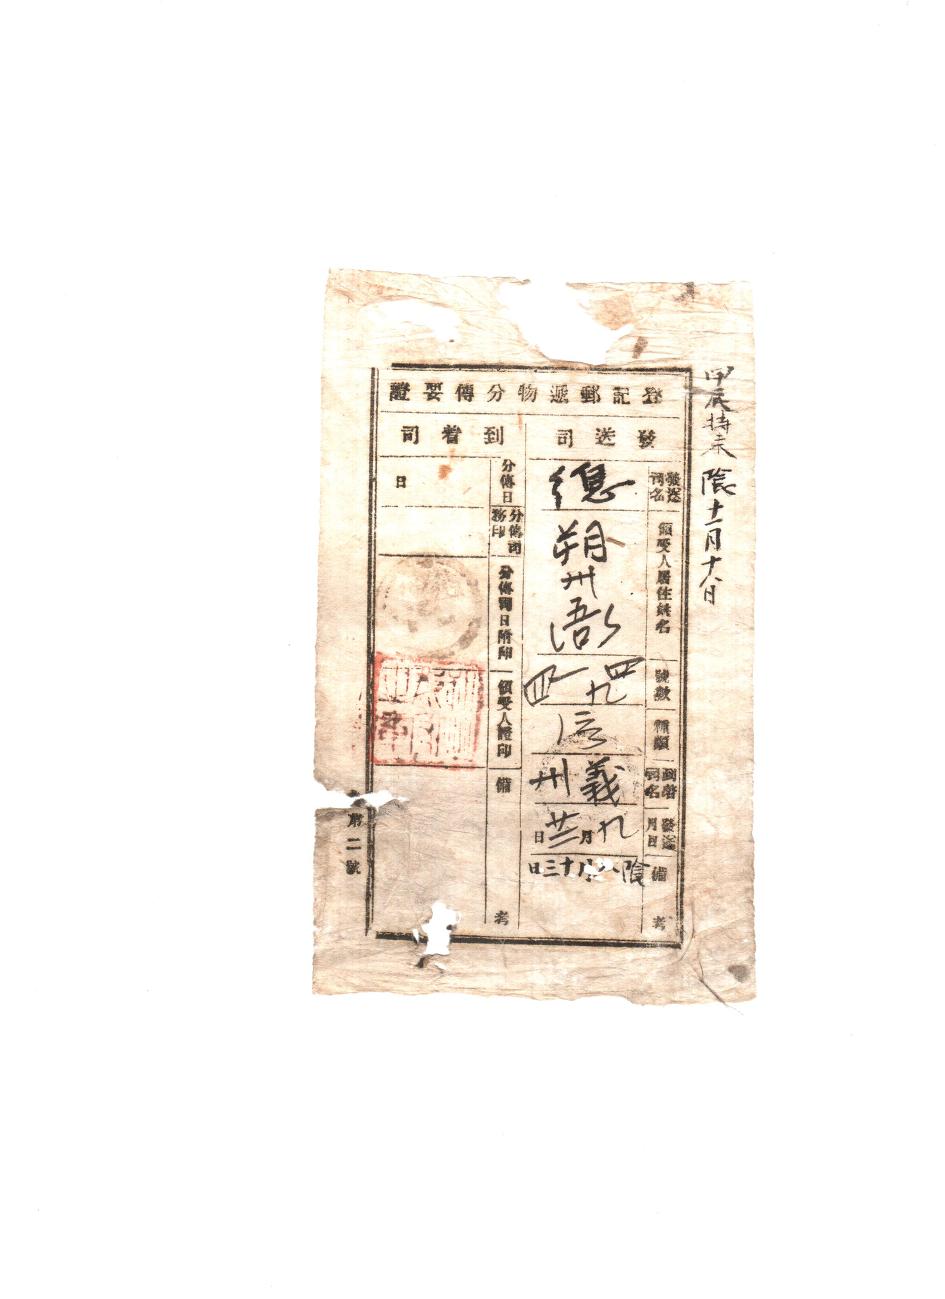 甲辰持来 陰十一月十八日
登記郵遞物分傳要證
發送司
發送司名
總
領受人居住姓名
朔州衙
號數
種類
到着司名
義州
發送月日
九月廿三日
備考
陰八月十三日
到着司
分傳日
日
分傳司務印
分傳司日附印
領受人證印
備考
第二號